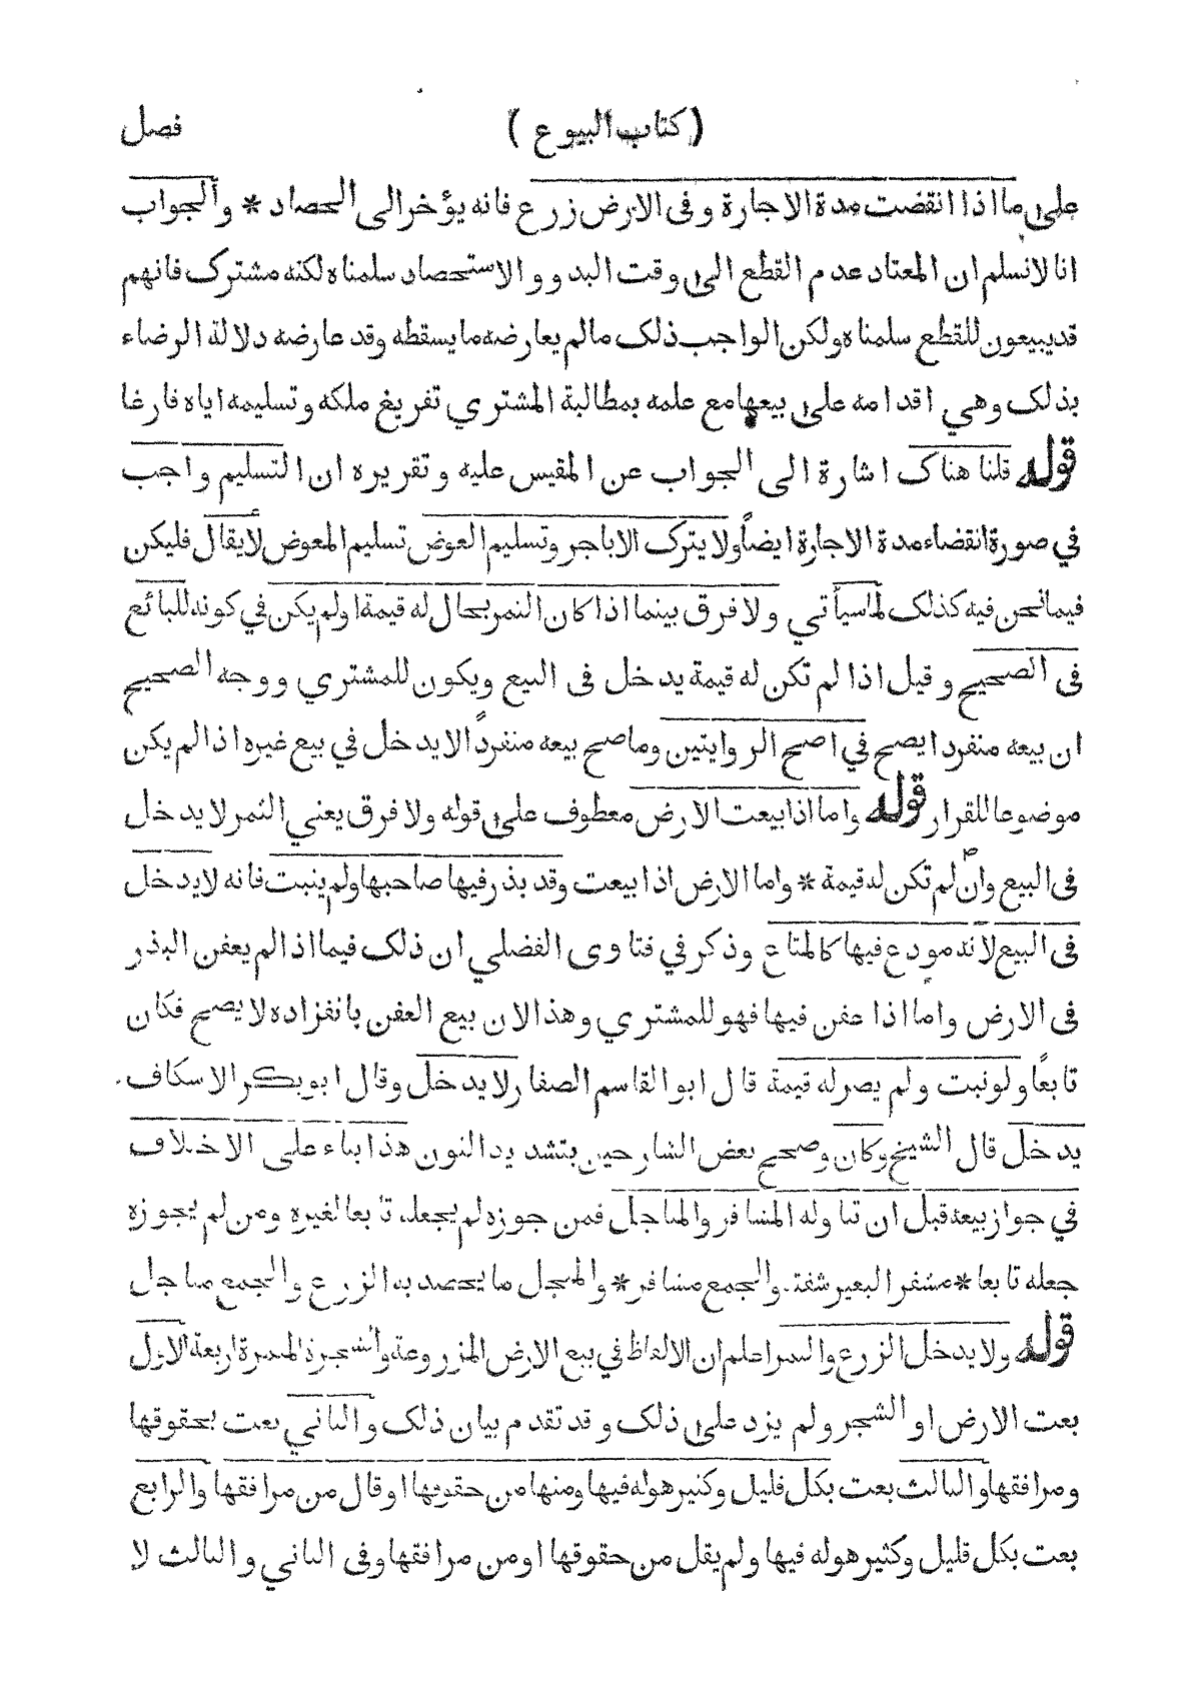 (كتاب البيوع) فصل
على ما اذا انقضت مدة الاجارة وفى الارض زرع فانه يؤخر الى الحصاد * والجواب
انا لانسلم ان المعتاد عدم القطع الى وقت البدو والاستحصاد سلمناه لكنه مشترك فانهم
قد يبيعون للقطع سلمناه ولكن الواجب ذلك مالم يعارضه ما يسقطه وقد عارضه دلالة الرضاء
بذلك وهي اقدامه على بيعها مع علمه بمطالبة المشتري تفريغ ملكه وتسليمه اياه فارغا
قوله قلنا هناك اشارة الى الجواب عن المقيس عليه وتقريره ان التسليم واجب
في صورة انقضاء مدة الاجارة ايضاً ولا يترك الا باجر وتسليم العوض تسليم المعوض لا يقال فليكن
فيما نحن فيه كذلك لما سيأتي ولا فرق بينما اذا كان الثمر بحال له قيمة او لم يكن في كونه للبائع
فى الصحيح وقيل اذا لم تكن له قيمة يدخل فى البيع ويكون للمشتري ووجه الصحيح
ان بيعه منفردا يصح في اصح الروايتين وما صح بيعه منفرداً لا يدخل في بيع غيره اذا لم يكن
موضوعا للقرار قوله واما اذا بيعت الارض معطوف على قوله ولا فرق يعني الثمر لا يدخل
فى البيع وان لم تكن له قيمة * واما الارض اذا بيعت وقد بذر فيها صاحبها ولم ينبت فانه لا يدخل
فى البيع لانه مودع فيها كالمتاع وذكر في فتاوى الفضلي ان ذلك فيما اذا لم يعفن البذر
فى الارض واما اذا عفن فيها فهو للمشتري وهذا لان بيع العفن بانفراده لا يصح فكان
تابعاً ولو نبت ولم يصر له قيمة قال ابو القاسم الصفار لا يدخل وقال ابوبكر الاسكاف
يدخل قال الشيخ وكان وصحح بعض الشارحين بتشديد النون هذا بناء على الاختلاف
في جواز بيعه قبل ان تناوله المشافر والمناجل فمن جوزه لم يجعله تابعا لغيره ومن لم يجوزه
جعله تابعا * مشفر البعير شفته والجمع مشافر * والمنجل ما يحصد به الزرع والجمع مناجل
قوله ولا يدخل الزرع والثمر اعلم ان الالفاظ في بيع الارض المزروعة والشجرة المثمرة اربعة الاول
بعت الارض او الشجر ولم يزد على ذلك وقد تقدم بيان ذلك والثاني بعت بحقوقها
ومرافقها والثالث بعت بكل قليل وكثير هو له فيها ومنها من حقوقها او قال من مرافقها والرابع
بعت بكل قليل وكثير هو له فيها ولم يقل من حقوقها او من مرافقها وفى الثاني والثالث لا